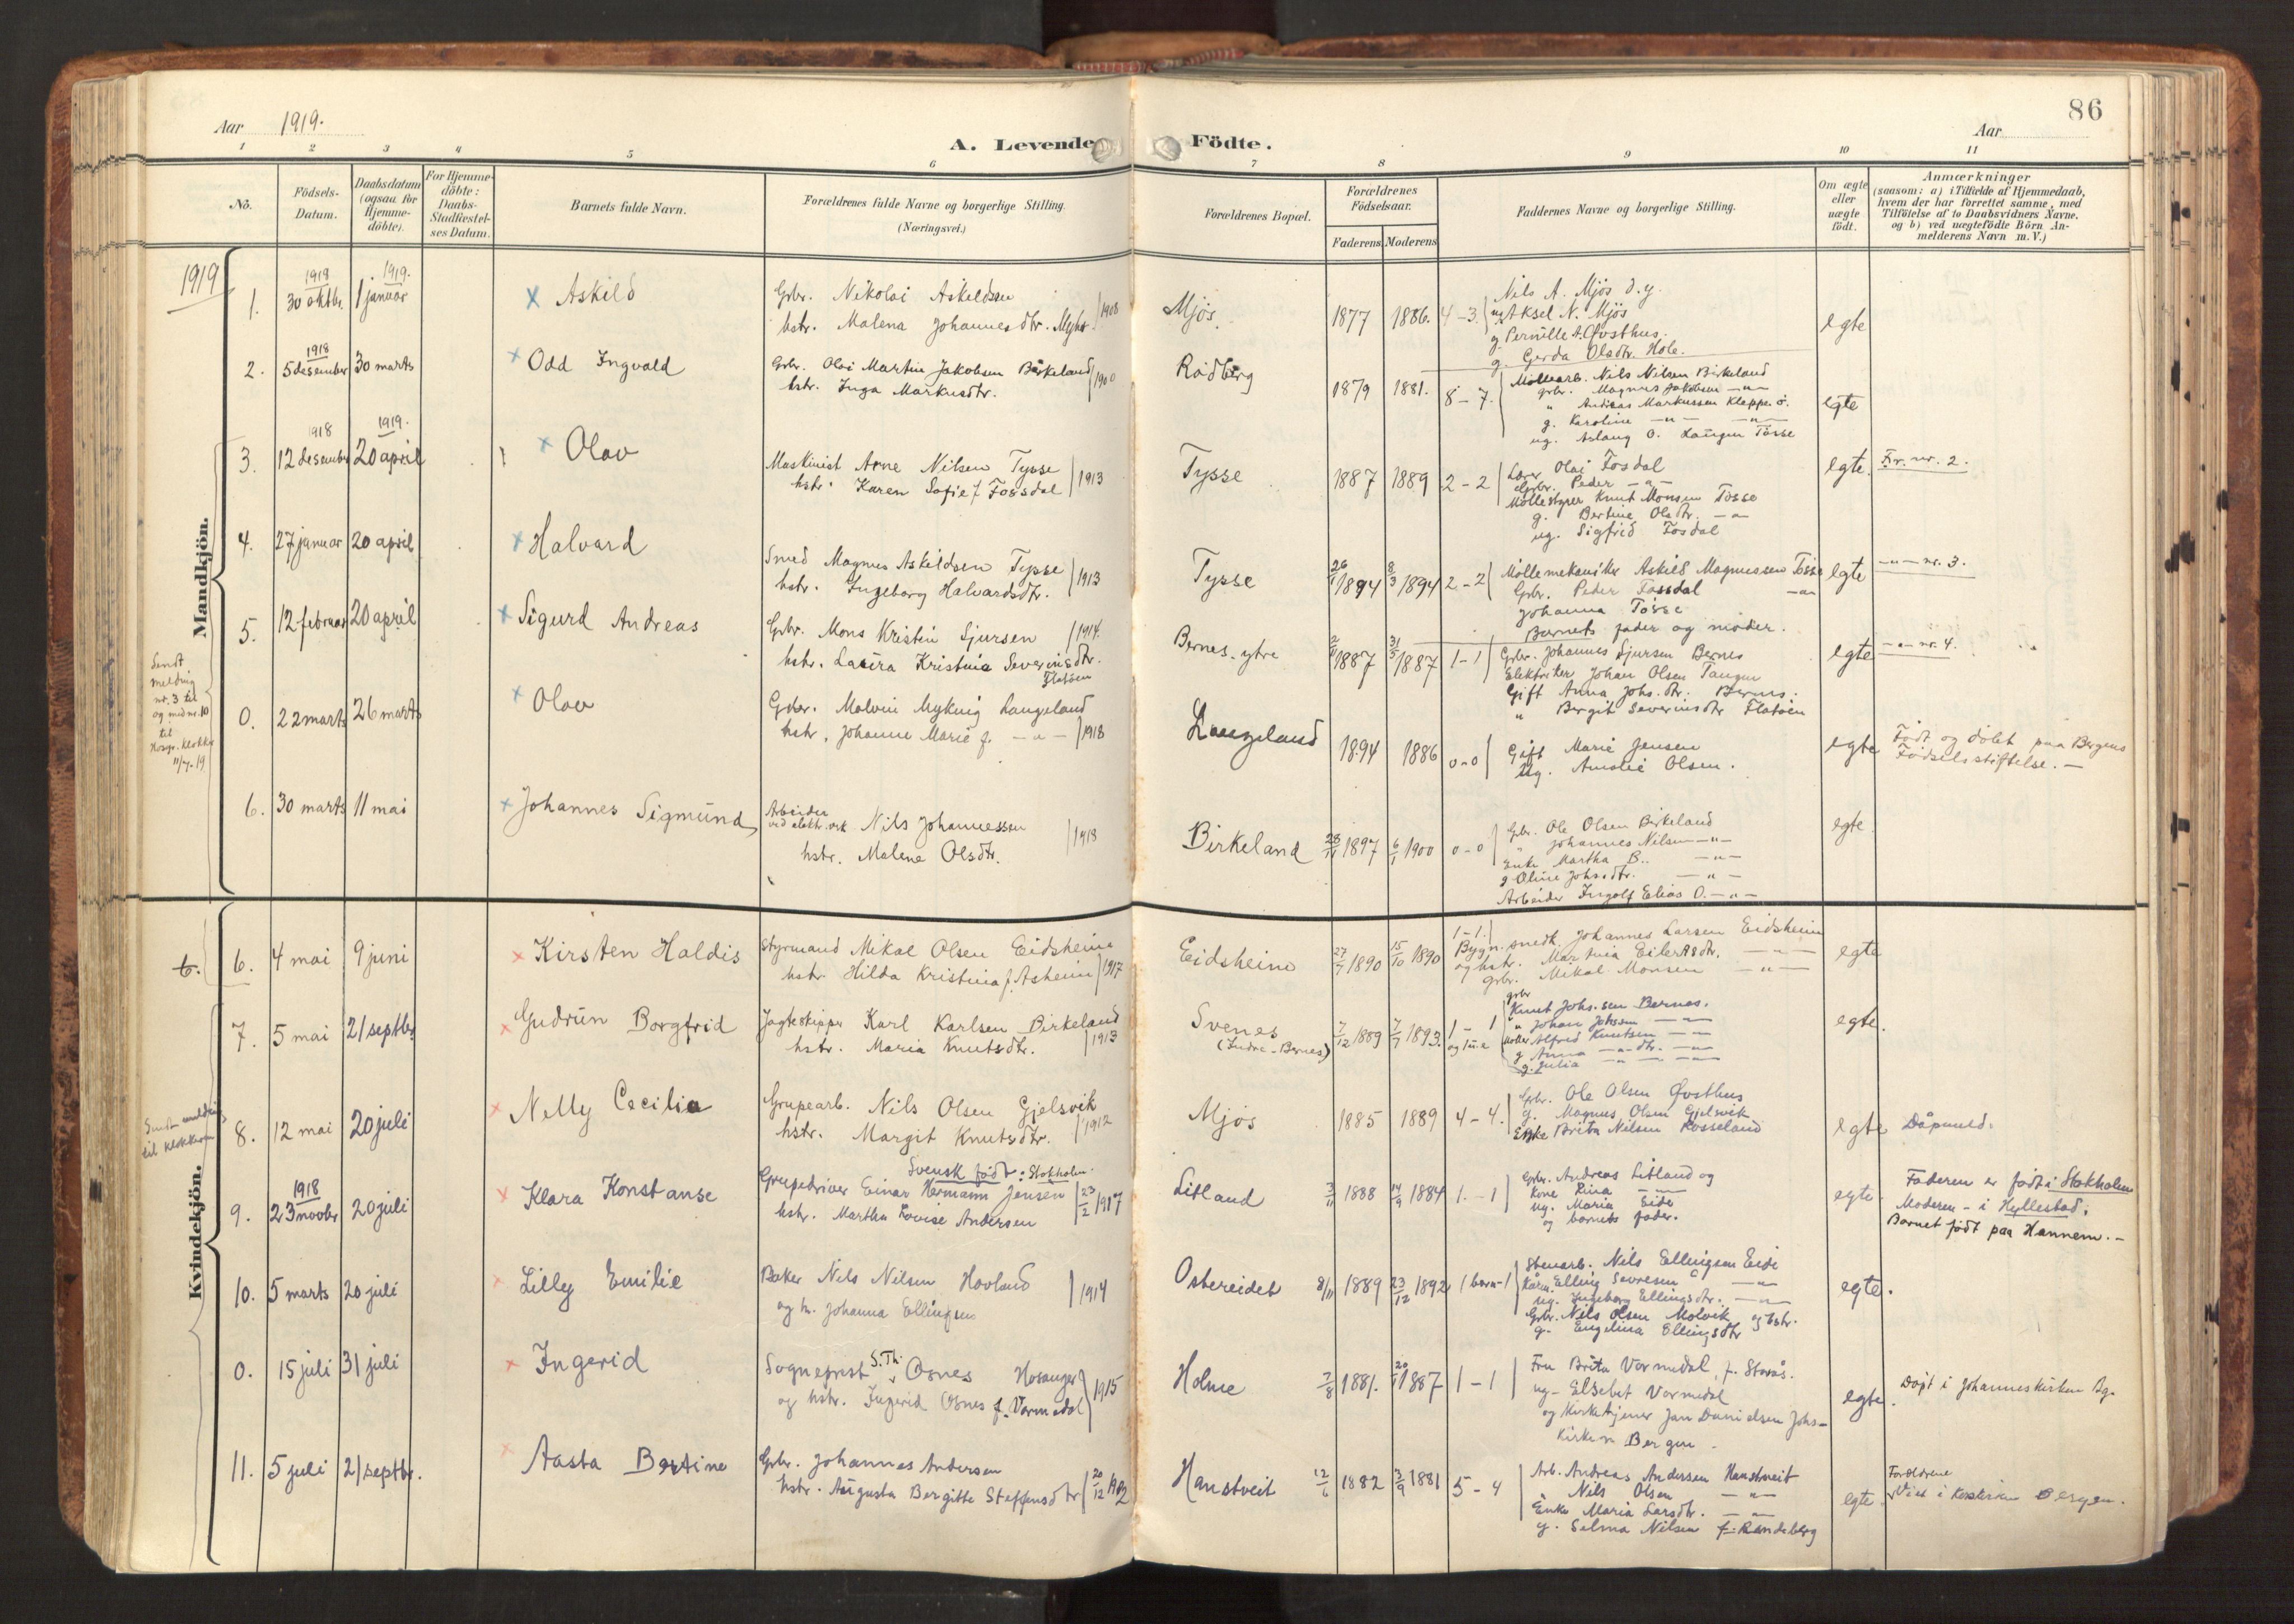 86
Aar 1919.
Aar
A. Levende Födte.
1 2 3 4 5 6 7 8 9 10 11
No.
Födsels-Datum.
Daabsdatum (ogsaa for Hjemmedöbte).
For Hjemmedöbte: Daabs-Stadfæstelses Datum.
Barnets fulde Navn.
Forældrenes fulde Navne og borgerlige Stilling. (Næringsvei.)
Forældrenes Bopæl.
Forældrenes Födselsaar.
Faderens Moderens
Faddernes Navne og borgerlige Stilling.
Om ægte eller uægte födt.
Anmærkninger
(saasom: a) i Tilfælde af Hjemmedaab,
hvem der har forrettet samme, med
Tilföielse af to Daabsvidners Navne.
og b) ved uægtefödte Börn An-
melderens Navn m. V.)
Mandkjön.
1919
1. 1918 30 oktbr. 1919. 1 januar Askild
Gbr. Nikolai Askeldsen
hstr. Malena Johannesdtr. Myhr 1908
Mjös. 1877 1886. 4-3.
Nils A. Mjös d.y.
ug. Aksel N. Mjös
g. Pernille A. Øvsthus.
g. Gerda Olsdtr. Hole.
egte
2. 1918 5 desember 30 marts Odd Ingvald
Gbr. Olai Martin Jakobsen Birkeland
hstr. Inga Markusdtr. 1900
Rödberg 1879 1881. 8-7.
Möllearb. Nils Nilsen Birkeland
gbr. Magnus Jakobsen -"-
" Andreas Markussen Kleppe ö.
g. Karoline -"- -"-
ug. Aslaug O. Laugen Tösse
egte
3. 1918 12 desember 1919. 20 april Olav
Maskinist Arne Nilsen Tysse
hstr. Karen Sofie f. Fossdal 1913
Tysse 1887 1889 2-2
Lærer Olai Fosdal
Gbr. Peder -"-
Möllestyrer Knut Monsen Tösse
g. Bertine Olsdtr. -"-
ug. Sigfrid Fosdal
egte. Fr. nr. 2.
4. 27 januar 20 april Halvard
Smed Magnus Askildsen Tysse
hstr. Ingeborg Halvardsdtr. 1913
Tysse 26/1 1894 8/3 1894 2-2
Möllemekaniker Askild Magnussen Tösse
Gbr. Peder Fossdal -"-
Johanna Tösse
Barnets fader og moder.
egte -"- nr. 3.
5. 12 februar 20 april Sigurd Andreas
Gbr. Mons Kristin Sjursen 1914.
hstr. Laura Kristina Severinsdtr. Flatöen
Bernes. ytre 1887 31/5 1887 1-1
Gbr. Johannes Sjursen Bernes
Elektriker Johan Olsen Tangen
Gift Anna Johs. dtr. Bernes.
" Bergit Severinsdtr Flatöen
egte -"- nr. 4.
Sendt
melding
nr. 3 til
og med nr. 10
til
Hosgr. Klokker
11/7.19
0. 22 marts 26 marts Olav
Gbr. Malvin Myking Langeland
hstr. Johanne Marie f. -"- 1918
Langeland 1894 1886 0-0
Gift Marie Jensen
Ug. Amalie Olsen.
egte
Födt og döbt paa Bergens
Födselsstiftelse. -
6. 30 marts 11 mai Johannes Sigmund
Arbeider
ved elektr. verk Nils Johannessen
hstr. Malene Olsdtr. 1918
Birkeland 28/11 1897 6/1 1900 0-0
Gbr. Ole Olsen Birkeland
" Johannes Nilsen -"-
Enke Martha B.. -"-
g Oline Johsdtr. -"-
Arbeider Ingolf Elias O. -"-
egte.
Kvindekjön.
6. 6. 4 mai 9 juni Kirsten Haldis
Styrmand Mikal Olsen Eidsheim
hstr. Hilda Kristina f. Asheim 1917
Eidsheim 27/7 1890 15/10 1890 1-1.
Bygn. snedk. Johannes Larsen Eidsheim
og hstr. Martina Eilertsdtr. -"-
gbr. Mikal Monsen -"-
egte
7. 5 mai 21 septbr. Gudrun Borgfrid
Jagteskipper Karl Karlsen Birkeland
hstr. Maria Knutsdtr. 1913
Svenes
(Indre-Bernes) 7/12 1889 7/7 1893. 1-1
gbr
Knut Johs.sen Bernes.
" Johan Johssen -"-
Alfred Knutsen -"-
g Anna -"-dtr. -"-
g. Julia -"- -"-
egte.
Sendt melding
til klokkeren
8. 12 mai 20 juli Nelly Cecilia
Grupearb. Nils Olsen Gjelsvik
hstr. Margit Knutsdtr. 1912
Mjös 1885 1889 4-4.
Gbr. Ole Olsen Øvsthus
g. Magnus Olsen Gjelsvik
Enke Brita Nilsen Rosseland
egte Dåpmeld.
9. 1918 23 novbr 20 juli Klara Konstanse
Svensk födt: Stokholm.
Grupedriver Einar Hermann Jensen
hstr. Martha Lovise Andersen 23/2 1917
Litland 3/11 1888 14/9 1884 1.-1
Gbr. Andreas Litland og
kone Rina -"-
ug. Maria Eide
og barnets fader.
egte.
Faderen er födt i Stokholm
Moderen - i Hyllestad;
Barnet födt paa Hannem. -
10. 5 marts 20 juli Lilly Emilie
Baker Nils Nilsen Hovland
og h. Johanna Ellingsen 1914
Ostereidet 8/11 1889 23/12 1892 1 barn-1
Stenarb. Nils Ellingsen Eidi
Kårm. Elling Sevresen -"-
ug. Ingeborg Ellingsdtr. -"-
Gbr. Nils Olsen Molvik og hstr.
g. Engelina Ellingsdtr
egte.
0. 15 juli 31 juli Ingerid
Sogneprest S. Th. Osnes Hosanger
og hstr. Ingerid Osnes f. Vormedal 1915
Holme 7/8 1881. 20/11 1887 1-1
Fru Brita Vormedal, f. Storås.
ug- Elsebet Vormedal
og Kirketjener Jan Danielsen Johs-
kirken Bergen -
egte. Döpt i Johanneskirken Bg.
11. 5 juli 21 septbr. Aasta Bertine
Gbr. Johannes Andersen
hstr. Augusta Bergitte Steffensdtr 20/12 1902
Hanstveit 12/6 1882 3/9 1881 5-4
Arb. Andreas Andersen Hanstveit
" Nils Olsen -"-
Enke Maria Larsdtr. -"-
g. Selma Nilsen f. Randeberg
egte.
Foreldrene
viet i Korskirken Bergen.